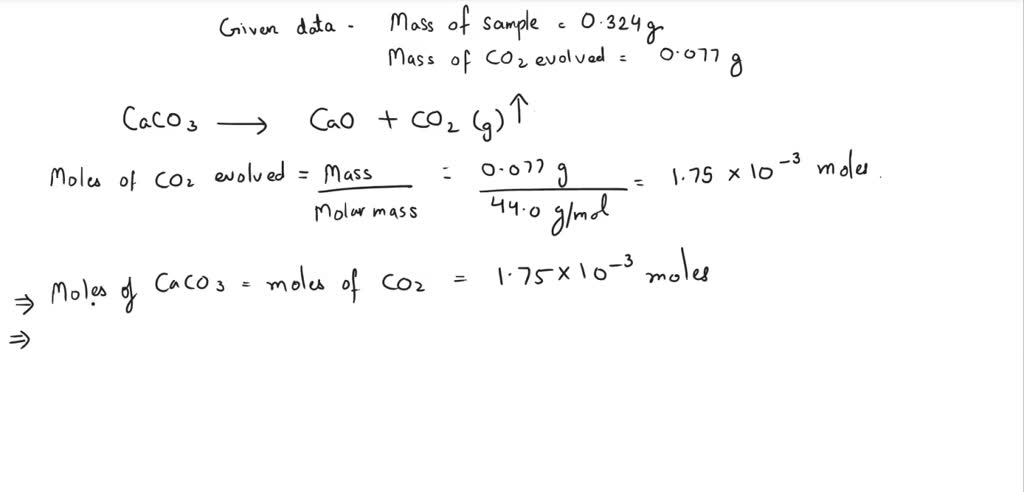 Given data - Mass of sample = 0.324g
Mass of CO2 evolved = 0.077 g
CaCO3 ⟶ CaO + CO2 (g)↑
Moles of CO2 evolved = Mass / Molar mass = 0.077 g / 44.0 g/mol = 1.75 × 10⁻³ moles.
⇒ Moles of CaCO3 = moles of CO2 = 1.75 × 10⁻³ moles
⇒